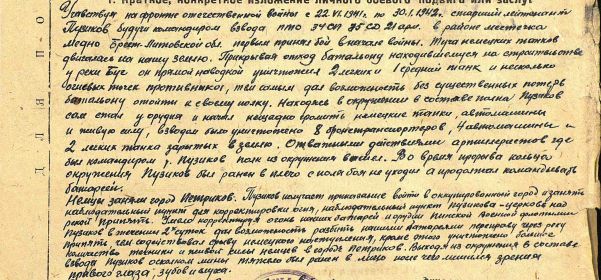 I. Краткое, конкретное изложение личного боевого подвига или заслуг
Участвуя на фронте отечественной войны с 22.VI.1941. по 30.1.1942. старший лейтенант
Пузиков будучи командиром взвода ПТО 34 СП 75 СД 21 арм. в районе местечка
Медно Брест-Литовской обл. первым принял бой в начале войны. Туча немецких танков
двигалась на нашу землю. Прикрывая отход батальону находившемуся на строительстве
у реки Буг он прямой наводкой уничтожил 2 легких и 1 средний танк и несколько
огневых точек противника, тем самым дал возможность без существенных потерь
батальону отойти к своему полку. Находясь в окружении в составе полка Пузиков
сам стал у орудия и начал нещадно громить немецкие танки, автомашины
и живую силу, взводом было уничтожено 8 бронетранспортеров, 4 автомашины и
2 легких танка зарытых в землю. Отважными действиями артиллеристов где
был командиром т. Пузиков полк из окружения вышел. Во время прорыва кольца
окружения Пузиков был ранен в плечо с поля боя не уходил а продолжал командовать
батареей.
Немцы заняли город Петриков. Пузиков получает приказание войти в оккупированный город и занять
наблюдательный пункт для корректировки огня, наблюдательный пункт Пузикова - церковь над
рекой Припять. Умело корректируя огонь нашей батареи и орудий Пинской Военной флотилии
Пузиков в течении 2х суток дал возможность разбить немецкую переправу через реку
Припять чем содействовал срыву немецкого наступления, кроме этого уничтожено большое
количество техники и живой силы немцев в городе Петриков. Выходя из окружения в составе
взвода Пузиков осколком мины тяжело был ранен в лицо после чего лишился зрения
правого глаза, зубов и слуха.